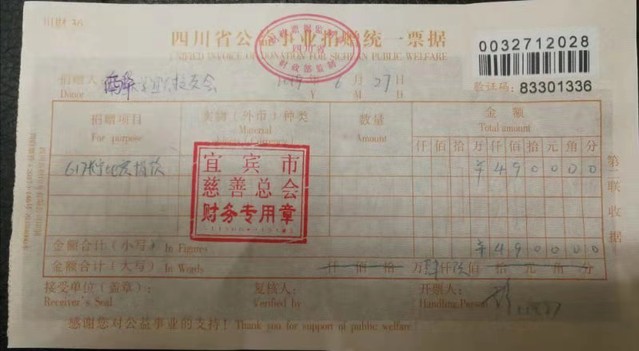 四川省公益事业捐赠统一票据
UNIFIED INVOICE OF DONATION FOR SICHUAN PUBLIC WELFARE
0032712028
验证码: 83301336
捐赠人
Donor
6月27日
Y M D
捐赠项目 实物（外币）种类 数量 金额
For purpose Material Amount Total amount
仟佰拾万仟佰拾元角分
617长宁地震捐款 ¥490000
宜宾市
慈善总会
财务专用章
金额合计（小写） In Figures ¥490000
金额合计（大写） In Words 仟佰拾万肆仟玖佰拾元角分
第二联收据
接受单位（盖章）: 复核人: 开票人:
Receiver's Seal Verified by Handling Person
感谢您对公益事业的支持! Thank you for support of public welfare